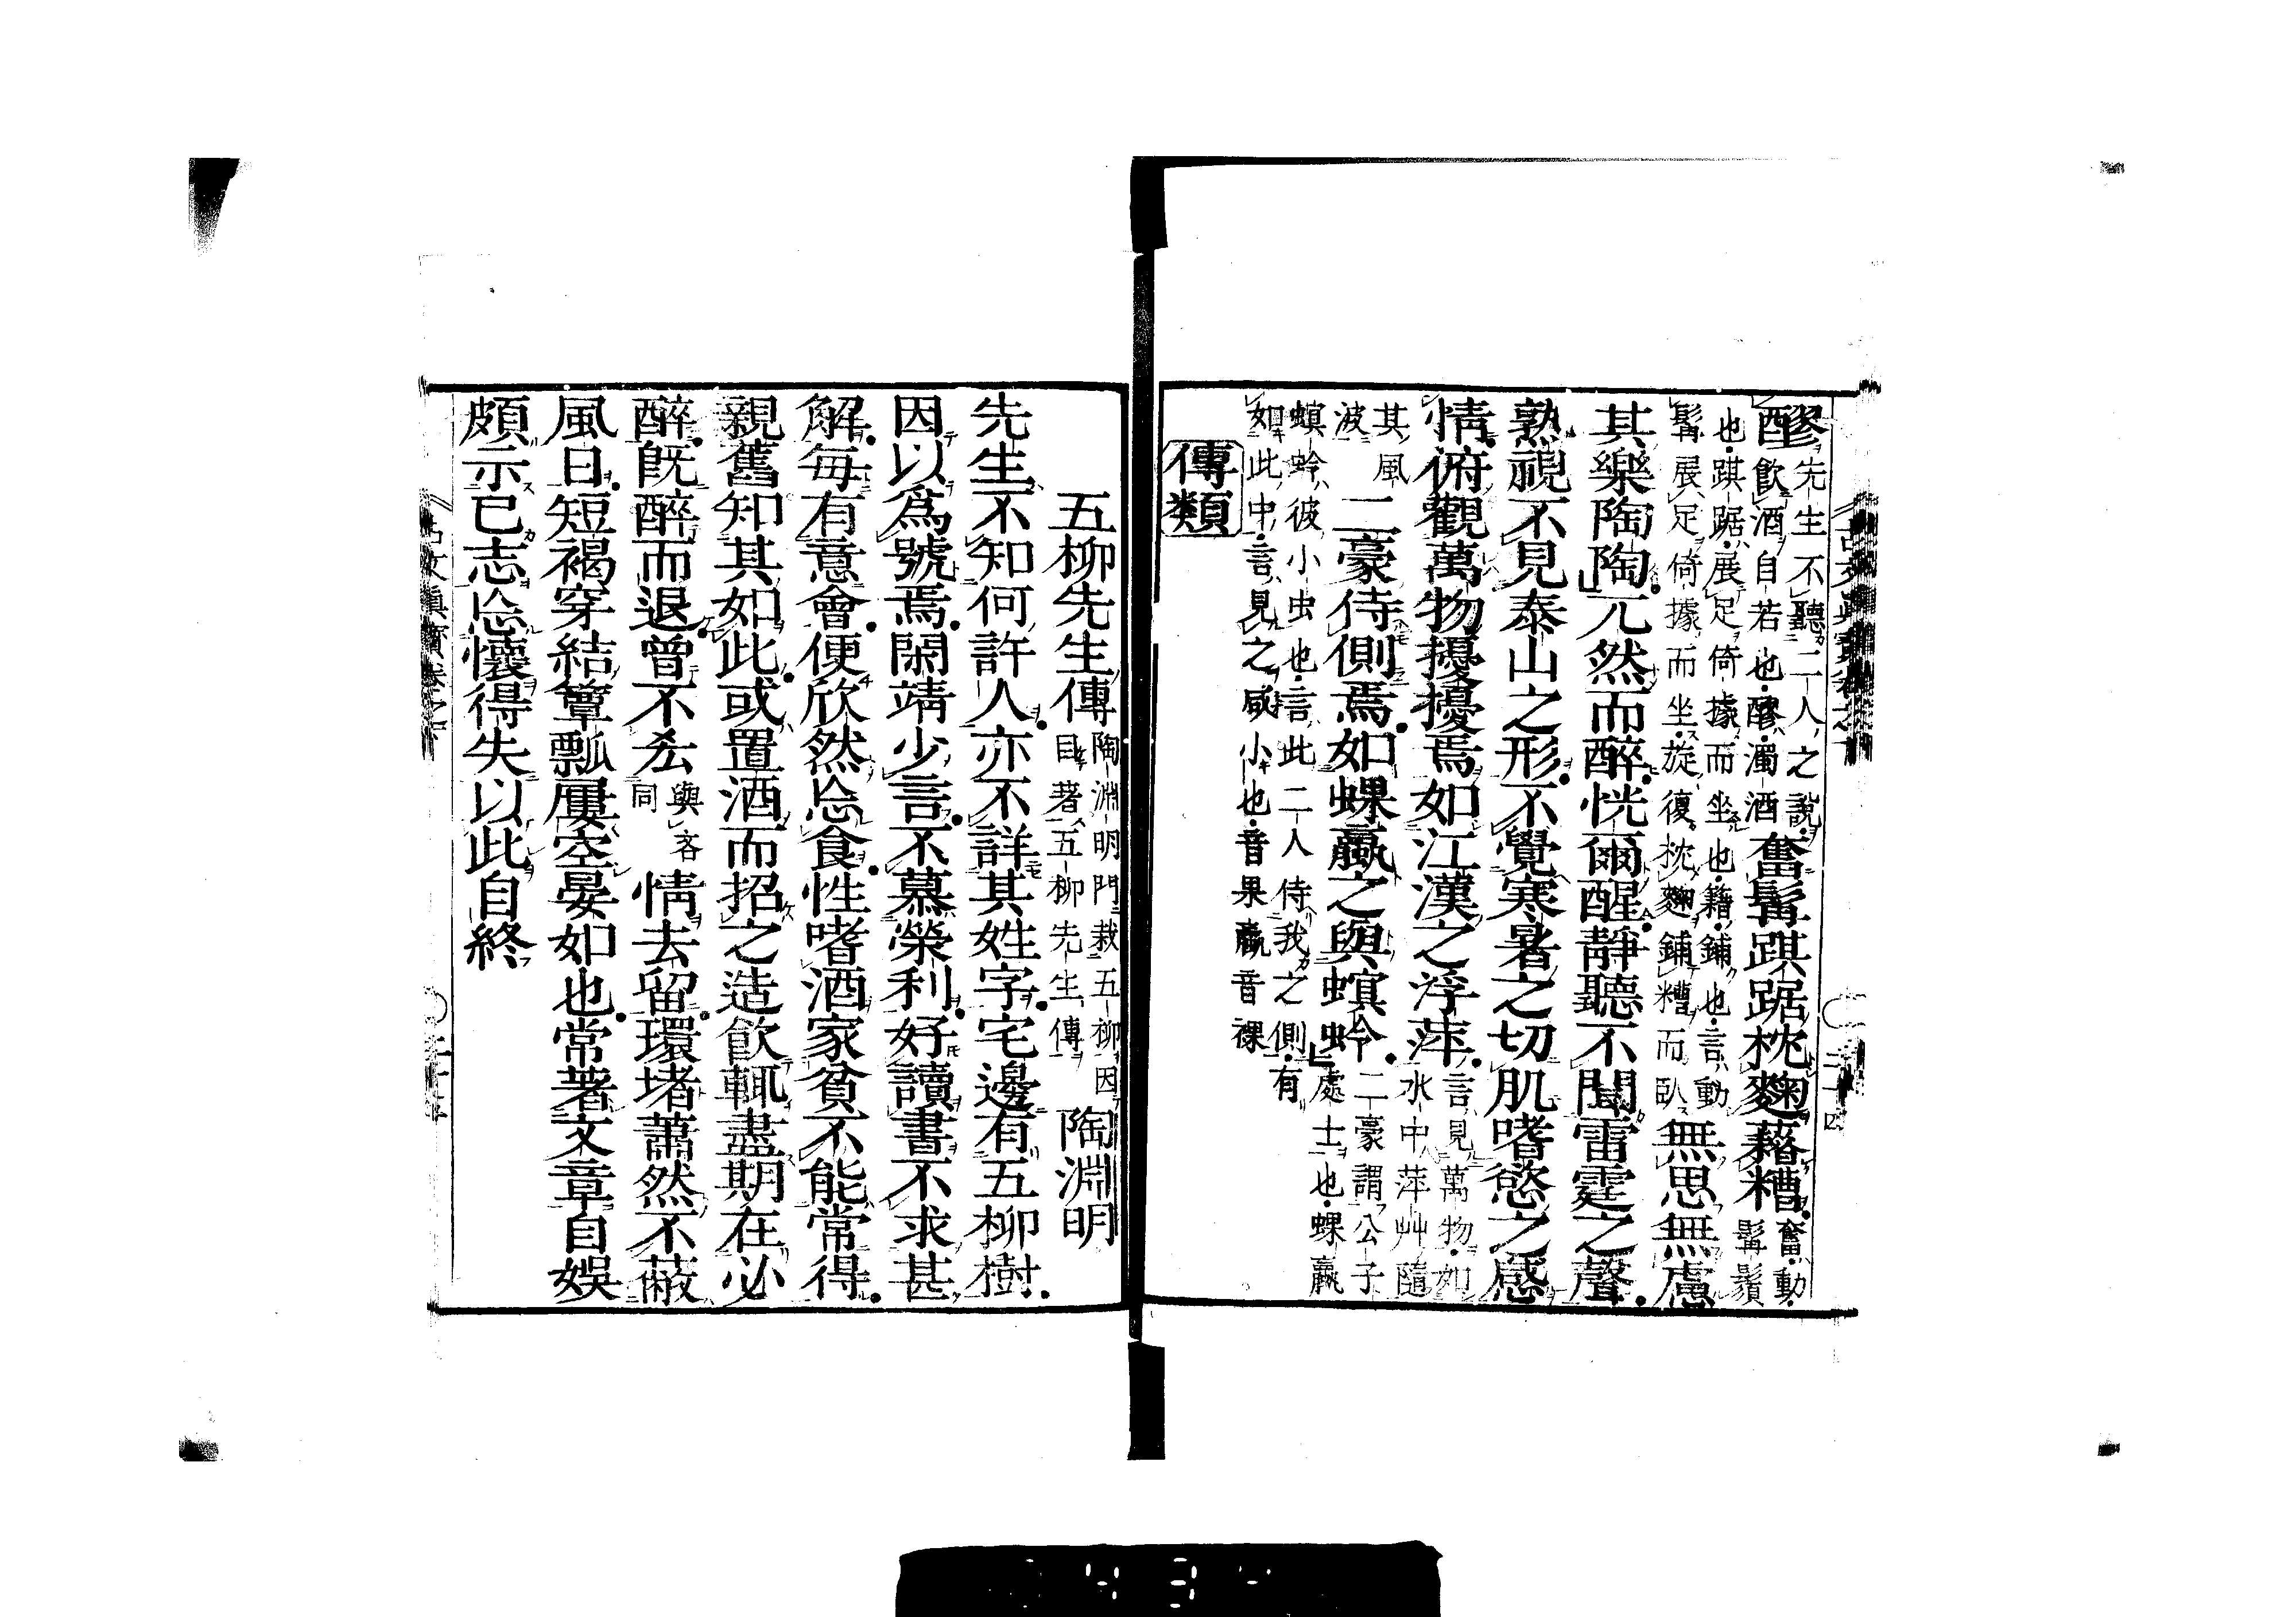 醪先生不聽二人之說飲酒自若也醪濁酒奮髯踑踞枕麴藉糟奮動髯鬚
也踑踞展足倚據而坐也籍鋪也言動髯展足倚據而坐旋復枕麴鋪糟而臥無思無慮
其樂陶陶兀然而醉恍爾醒靜聽不聞雷霆之聲
熟視不見泰山之形不覺寒暑之切肌嗜慾之感
情俯觀萬物擾擾焉如江漢之浮萍言見萬物如水中萍艸隨
其風波二豪侍側焉如蜾蠃之與螟蛉二豪謂公子處士也蜾蠃
螟蛉彼小虫也言此二人侍我之側有如此中言見之咸小也音果蠃音裸
傳類
五柳先生傳陶淵明門栽五柳因目著五柳先生傳陶淵明
先生不知何許人亦不詳其姓字宅邊有五柳樹
因以爲號焉閑靖少言不慕榮利好讀書不求甚
解每有意會便欣然忘食性嗜酒家貧不能常得
親舊知其如此或置酒而招之造飲輒盡期在必
醉既醉而退曾不吝與吝同情去留環堵蕭然不蔽
風日短褐穿結簞瓢屢空晏如也常著文章自娛
頗示己志忘懷得失以此自終